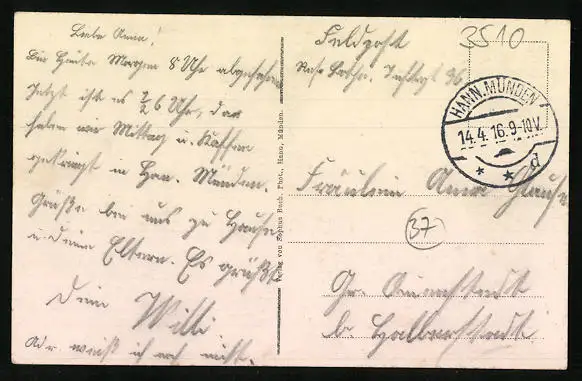 Liebe Anna!
Bin Heute Morgen 8 Uhr abgefahren
Jetzt ist es ½ 6 Uhr, da
haben wir Mittag u. Kaffee
gekriegt in Han. Münden.
Grüße bei uns zu Hause
u. deine Eltern. Es grüßt
Dein Willi
Adr. weiß ich noch nicht.
Verlag von Sophus Buch, Phot., Hann. Münden.
Feldpost
3510
HANN. MÜNDEN
14.4.16.9-10V.
* * d
Fräulein Anna
37
Gr. Quenstedt
b. Halberstadt